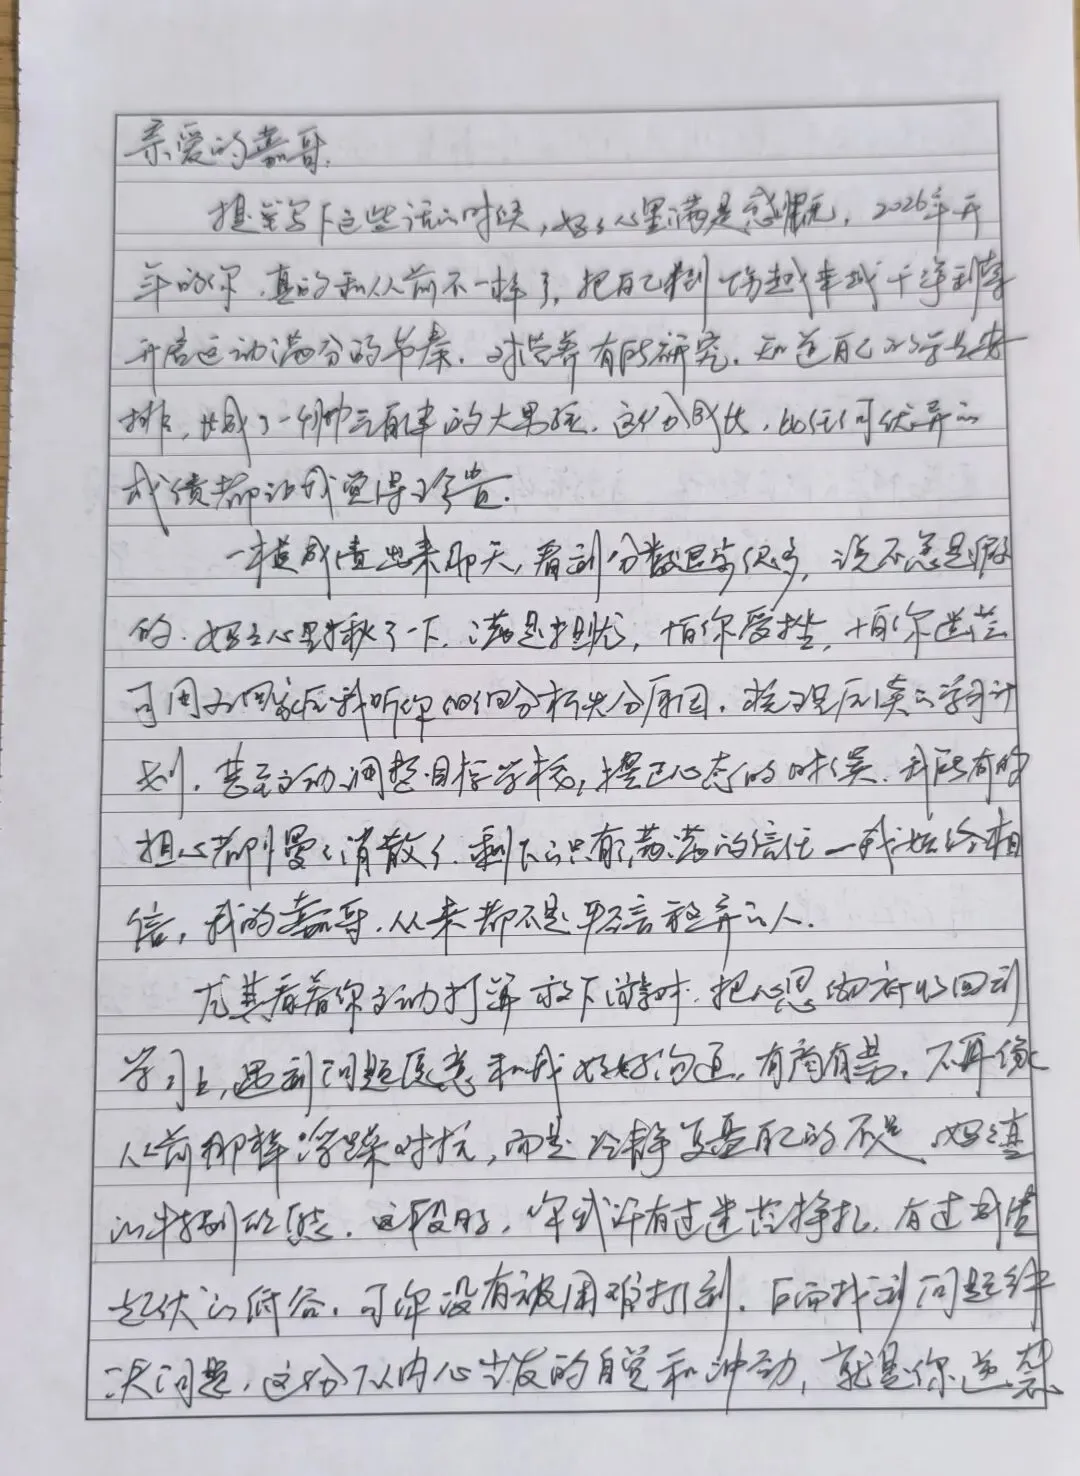 亲爱的嘉哥.
提笔写下这些话的时候,妈妈心里满是感慨, 2026年开
年的你,真的和从前不一样了,把自己捯饬越来越干净利落
开启运动满分的节奏.对营养有所研究.知道自己的学业安
排,长成了一个帅气有度的大男孩.这份成长,比任何优异的
成绩都让我觉得珍贵.
一模成绩出来那天,看到分数退步很多,说不急是假
的.妈妈心里揪了一下.满是担忧,怕你受挫,怕你迷茫
可周五回家后我听你细细分析失分原因,梳理后续的学习计
划.甚至主动调整目标学校,摆正心态的时候.我所有的
担心都慢慢消散了.剩下的只有满满的信任—我始终相
信,我的嘉哥.从来都不是轻言放弃的人.
尤其看着你主动打算放下游戏.把心思彻底收回到
学习上,遇到问题愿意和我好好沟通,有商有量.不再像
从前那样浮躁对抗,而是冷静复盘自己的不足.妈妈真
的特别欣慰.这段日子,你或许有过迷茫挣扎,有过成绩
起伏的低谷.可你没有被困难打倒.反而找到问题解
决问题.这份从内心生发的自觉和冲劲,就是你逆袭